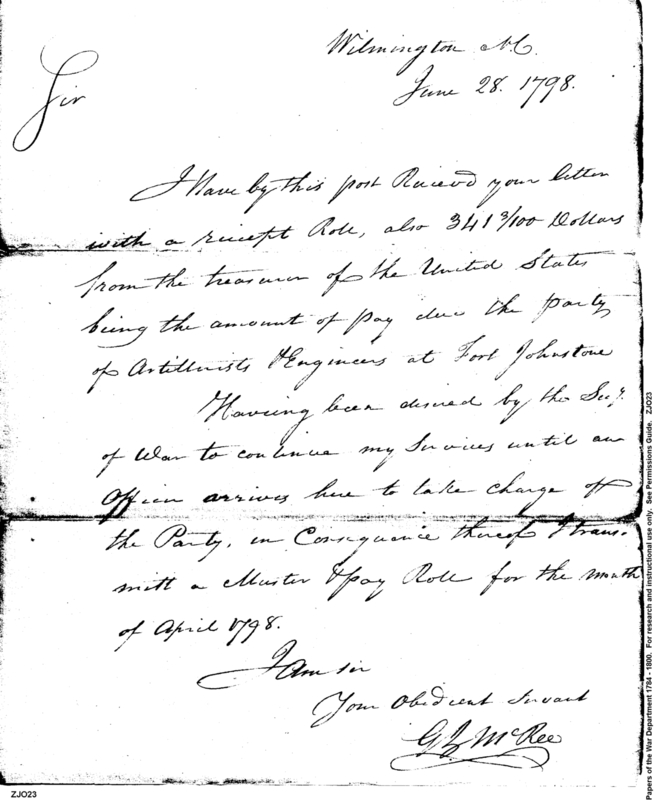 Wilmington N.C.
June 28. 1798.
Sir
I Have by this post Receevd your letter
with a receept Roll, also 341 3/100 Dollars
from the treasurer of the United States
being the amount of pay due the party
of Artillirists & Engineers at Fort Johnstone
Haveing been desired by the Secy.
of War to continue my Services until an
Officer arrives here to take charge of
the Party, in Consequence thereof I trans-
mitt a Muster & pay Roll for the month
of April 1798.
I am sir
Your Obedient Servant
G J McRee
ZJO23
Papers of the War Department 1784 - 1800. For research and instructional use only. See Permissions Guide. ZJO23